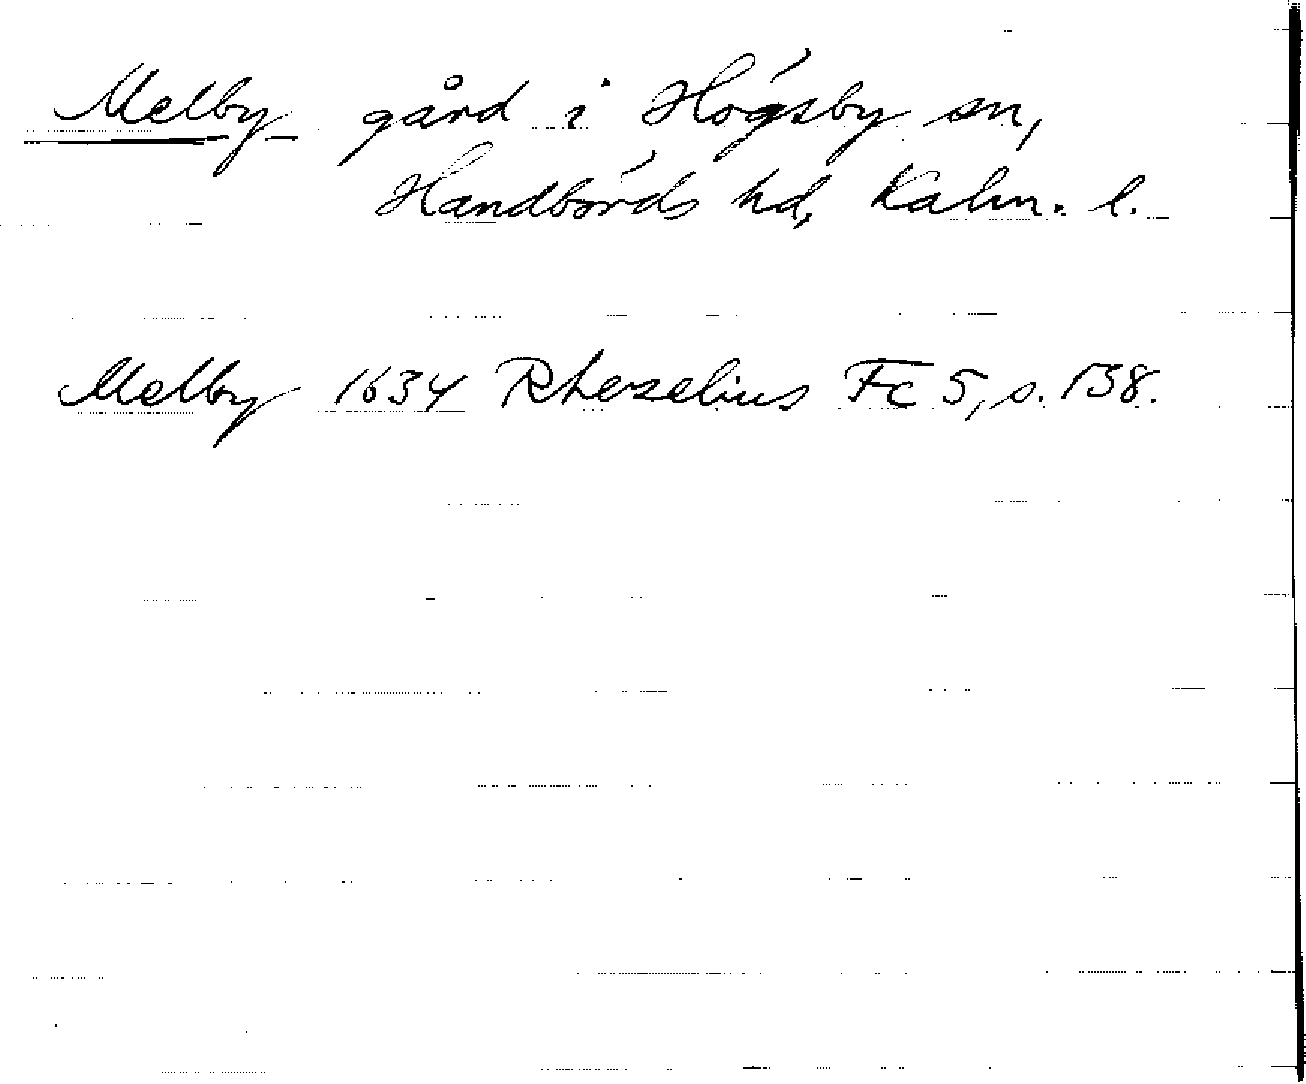 Melby gård i Högsby sn,
Handbörds hd, Kalm. l.
Melby 1634 Rhezelius Fc 5, s. 138.